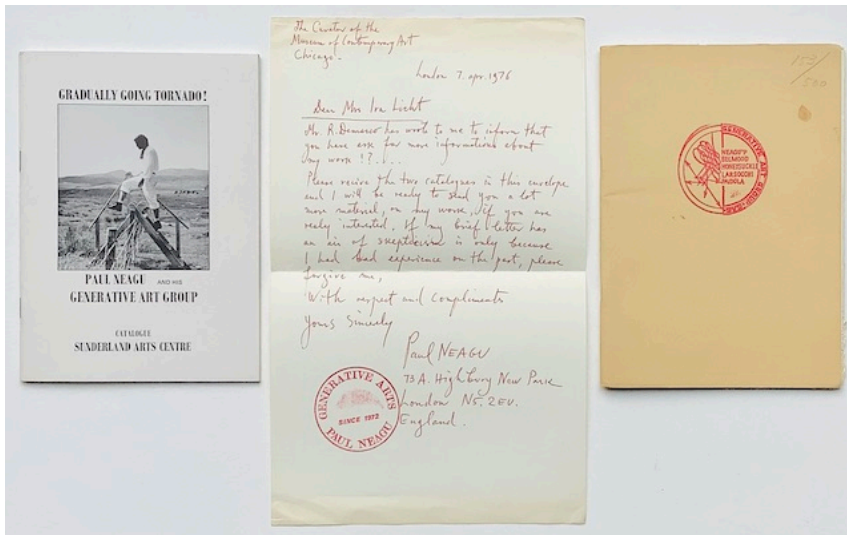 GRADUALLY GOING TORNADO!
PAUL NEAGU AND HIS
GENERATIVE ART GROUP
CATALOGUE
SUNDERLAND ARTS CENTRE
The Curator of the
Museum of Contemporary Art
Chicago.
London 7. apr. 1976
Dear Mrs Ira Licht
Mr. R. Demarco has wrote to me to inform that
you have ask for more informations about
my work !?.....
Please recive the two catalogues in this envelope
and I will be ready to send you a lot
more material, on my work, if you are
realy interested. If my brief letter has
an air of skepticism is only because
I had bad experience on the past, please
forgive me,
With respect and compliments
Yours Sincerly
Paul NEAGU
73A. Highbury New Park
London N5. 2EU.
England.
GENERATIVE ARTS
SINCE 1972
PAUL NEAGU
153/500
GENERATIVE ART GROUP
NEAGU
BELMOOD
HONEYSUCKLE
LARSOCCHI
PAIDOLA